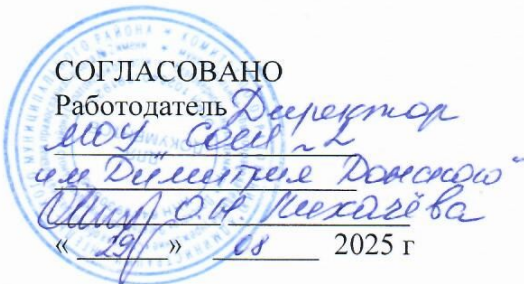 СОГЛАСОВАНО
Работодатель Директор
МОУ СОШ №2
им Димитрия Донского"
О.Н. Лихачёва
« 29 » 08 2025 г